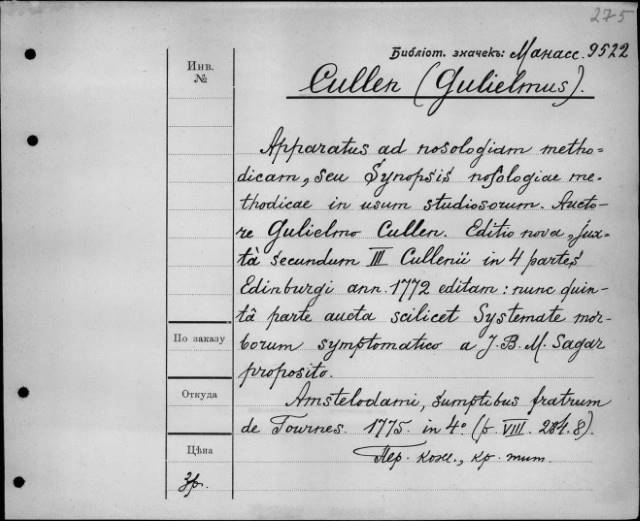 275
Библіот. значекъ: Манасс. 9522
Инв. №
Cullen (Gulielmus).
Apparatus ad nosologiam metho-
dicam, seu Synopsis nosologiae me-
thodicae in usum studiosorum. Aucto-
re Gulielmo Cullen. Editio nova, jux-
tà secundum III Cullenii in 4 partes
Edinburgi ann. 1772 editam: nunc quin-
tâ parte aucta scilicet Systemate mor-
borum symptomatico a J. B. M. Sagar
proposito.
Amstelodami, sumptibus fratrum
de Tournes. 1775. in 4º (p. VIII. 284. 8).
Пер. кож., кр. тит.
По заказу
Откуда
Цѣна
3р.